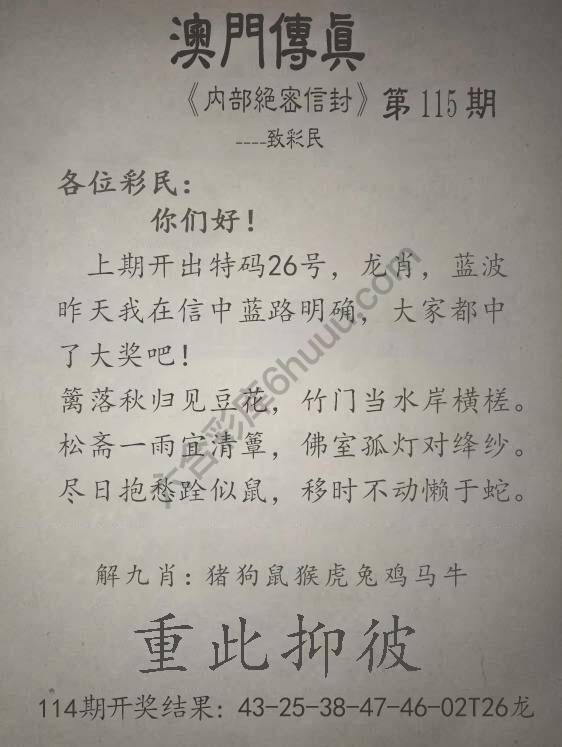 澳門傳眞
《内部絕密信封》第115期
----致彩民
各位彩民：
你们好！
上期开出特码26号，龙肖，蓝波
昨天我在信中蓝路明确，大家都中
了大奖吧！
篱落秋归见豆花，竹门当水岸横槎。
松斋一雨宜清簟，佛室孤灯对绛纱。
尽日抱愁跧似鼠，移时不动懒于蛇。
六合彩库6huuu.com
解九肖：猪狗鼠猴虎兔鸡马牛
重此抑彼
114期开奖结果：43-25-38-47-46-02T26龙